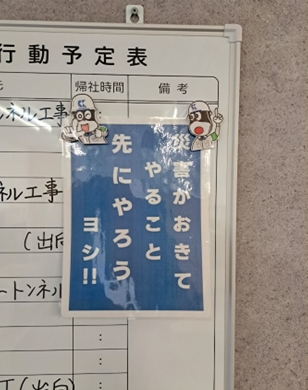 行動予定表
帰社時間
備考
ネル工事
ネル工事
(出向
ートンネル
災害がおきて
やること
先にやろう
ヨシ!!